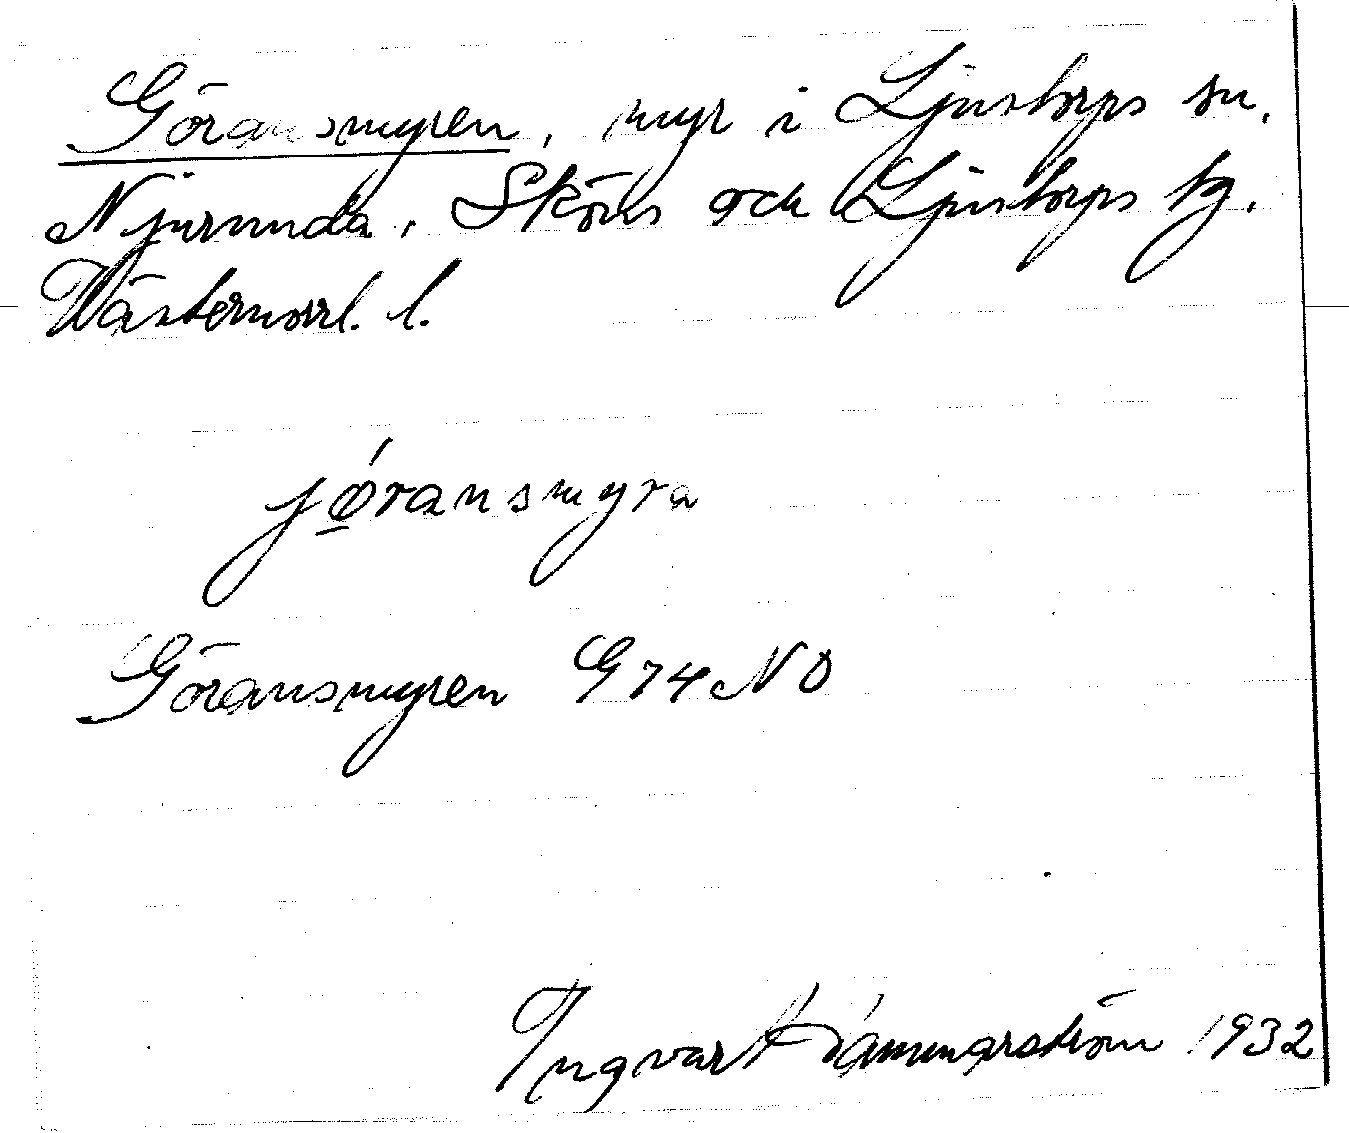 Göransmyren, myr i Ljustorps sn.
Njurunda, Sköns och Ljustorps tg.
Västernorrl. l.
jǿ̱ransmyra
Göransmyren G 74 NO
Ingvar Hámmarström 1932